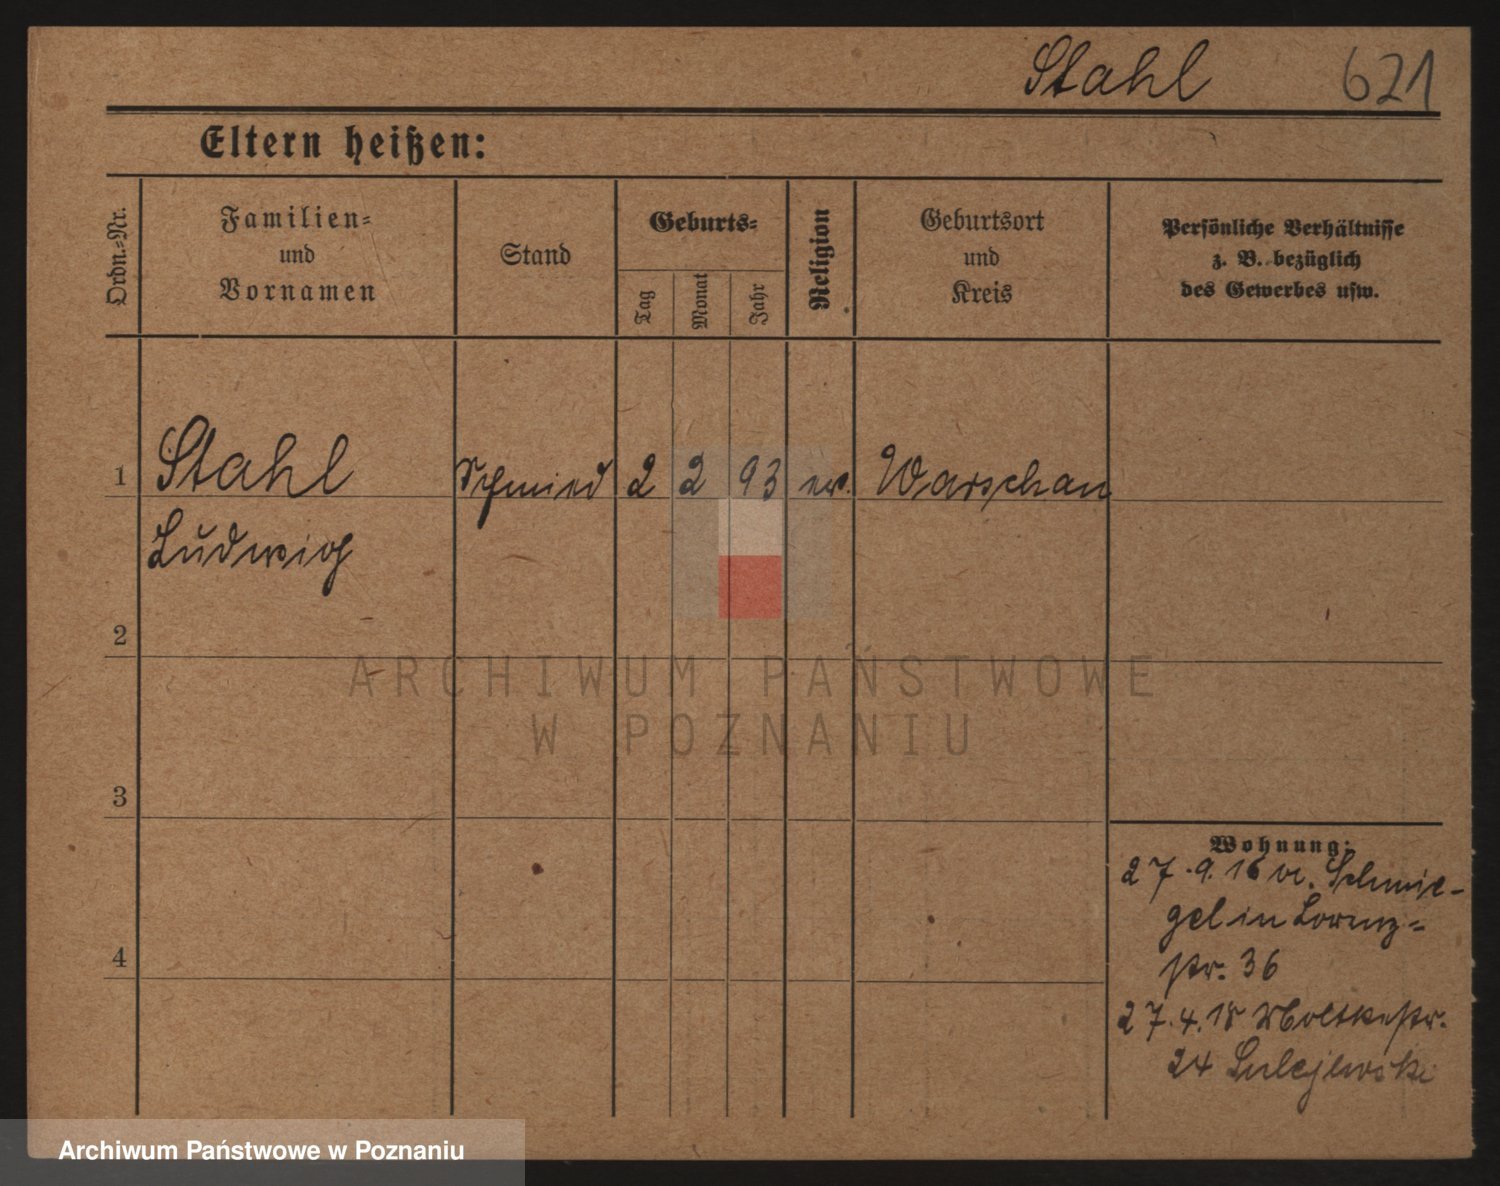 Stahl 621
Eltern heißen:
Ordn.=Nr.
Familien=
und
Vornamen
Stand
Geburts=
Tag
Monat
Jahr
Religion
Geburtsort
und
Kreis
Persönliche Verhältnisse
z. B. bezüglich
des Gewerbes usw.
1 Stahl Schmied 2 2 93 ev. Warschau
Ludwig
2
ARCHIWUM PAŃSTWOWE
W POZNANIU
3
Wohnung:
27.9.16 v. Schmie-
gel in Lorenz=
str. 36
4
27.4.18 Moltkestr.
24 Sulejewski
Archiwum Państwowe w Poznaniu